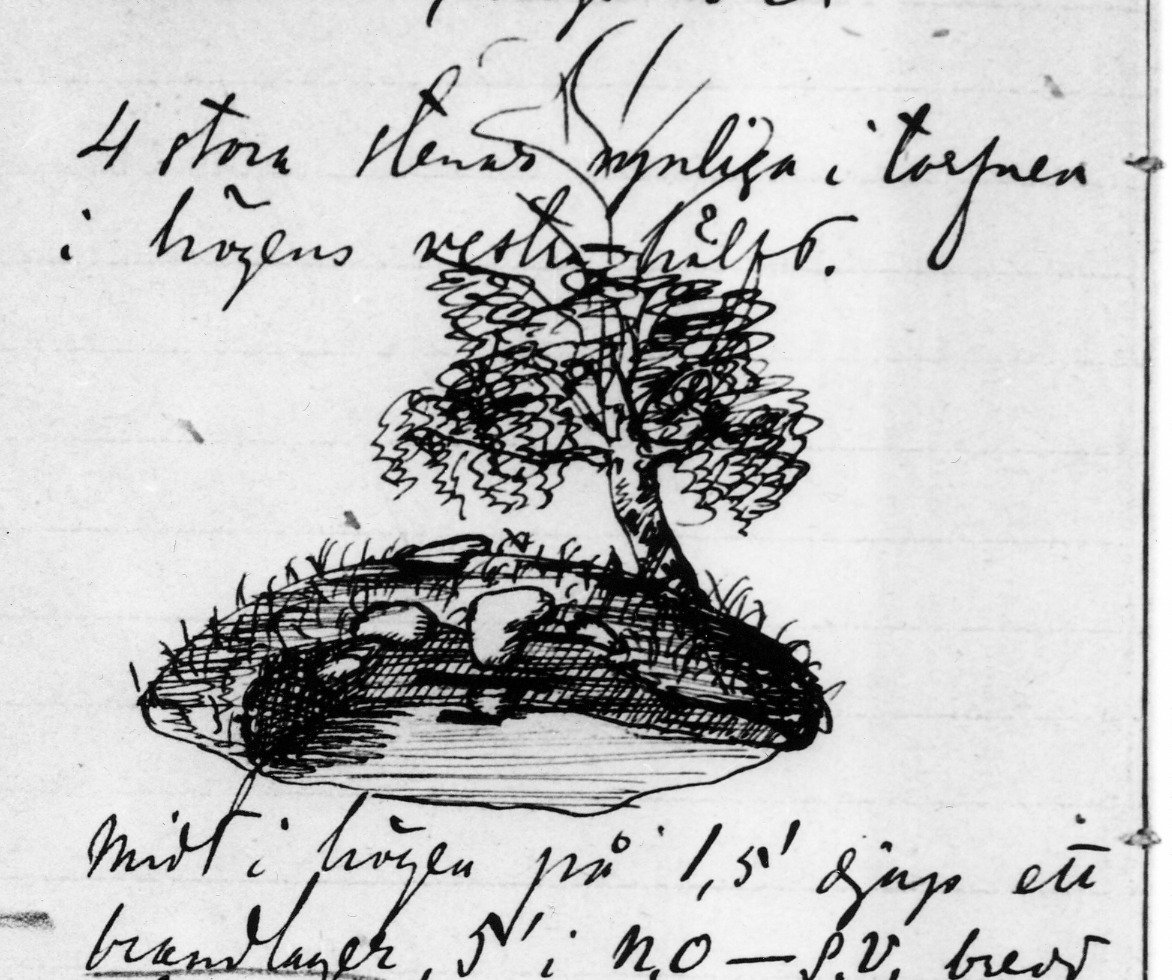 4 stora stenar synliga i torfven
i högens vestra hälft.
Midt i högen på 1,5' djup ett
brandlager, 5' i N.O – S.V. bredd